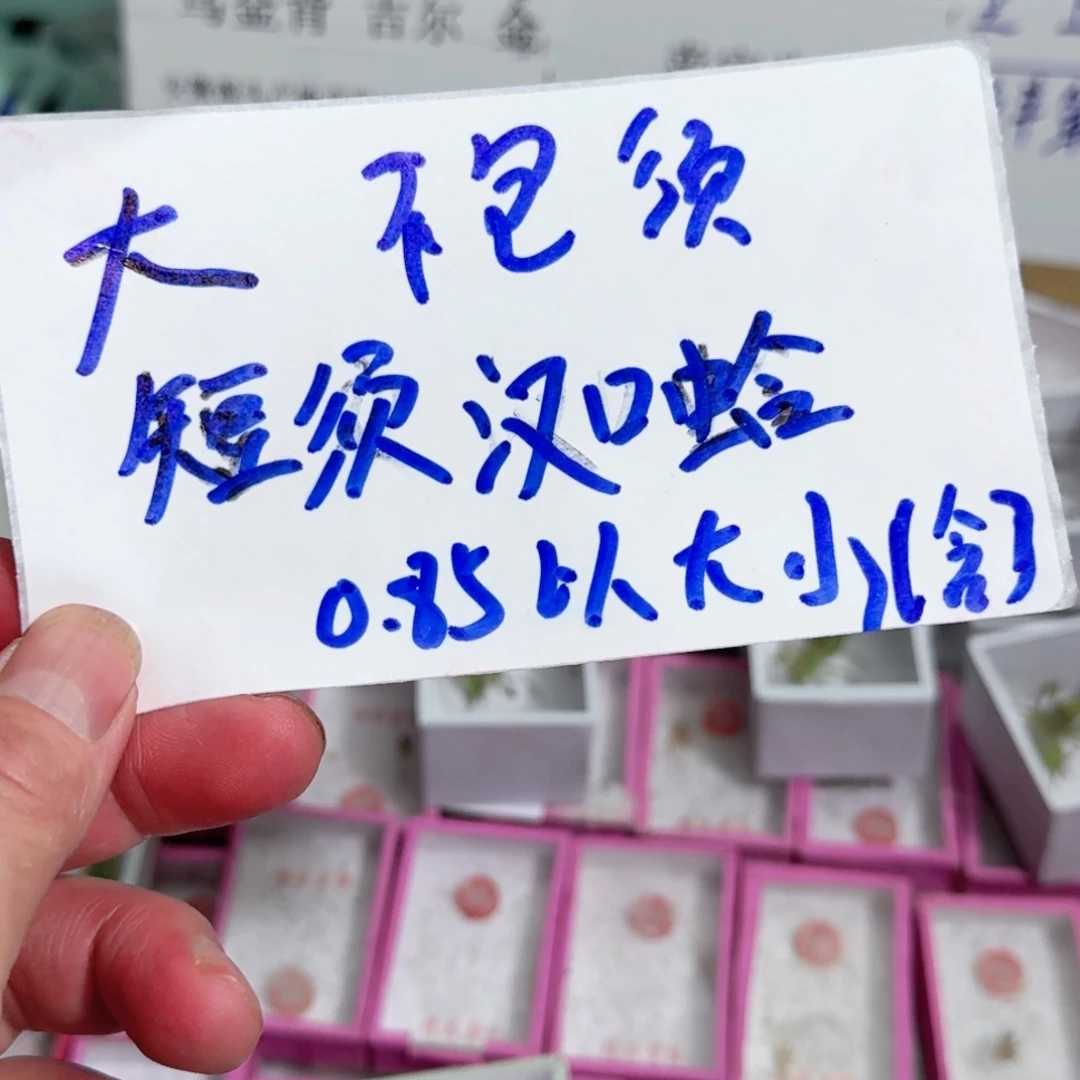 乌金背 吉尔 金
大 不包须
短须汉口蛉
0.85以大小(含)